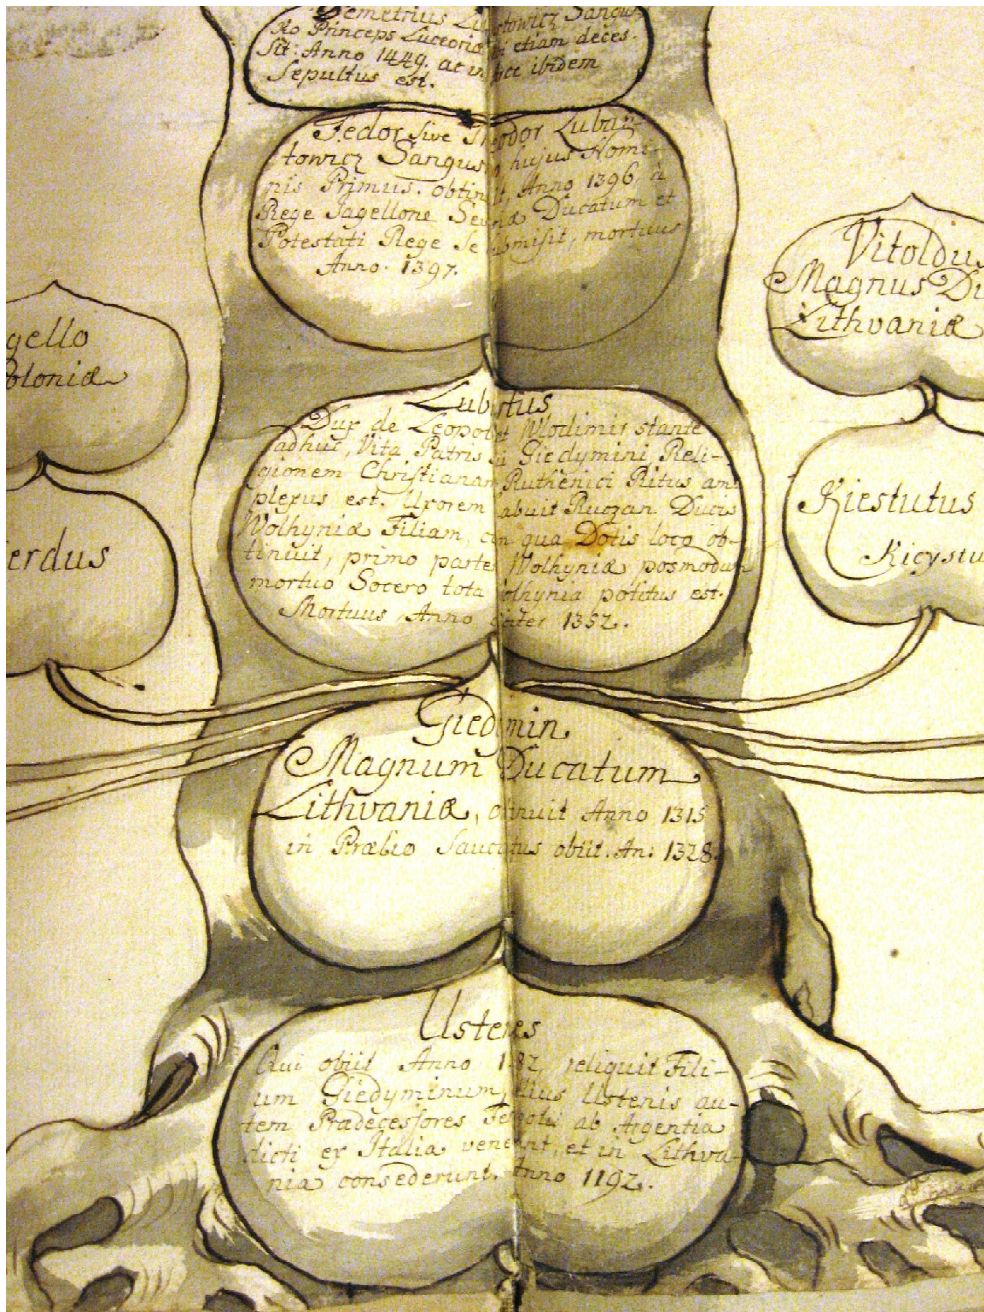 Demetrius Lubartowicz Sangus
ko Princeps Luceoriæ etiam deces-
sit Anno 1449. ac in ibidem
Sepultus est.
Fedor sive Theodor Lubar-
towicz Sangusko hujus Nomi-
nis Primus. obtinuit, Anno 1396, à
Rege Jagellone Severiæ Ducatum et
Potestati Rege se submisit, mortuus
Anno. 1397.
Vitoldus
Magnus Du
Lithvaniæ
gello
oloniæ
Lubartus
Dux de Leopol et Wlodimir stante
adhuc, Vita Patris sui Giedymini Reli-
gionem Christianam Ruthenici Ritus am
plexus est. Uxorem habuit Ruozan Ducis
Wolhyniæ Filiam, cum qua Dotis loco ob-
tinuit, primo partem Wolhyniæ posmodum
mortuo Socero tota Wolhynia potitus est.
Mortuus Anno circiter 1352.
Kiestutus
Kicystu
erdus
Giedymin
Magnum Ducatum
Lithvaniæ, obtinuit Anno 1315
in Prælio Sauciatus obiit. An: 1328.
Ustenes
Qui obiit Anno 1182 reliquit Fili-
um Giedyminum, illius Ustenis au-
tem Prædecessores ab Argentia
dicti ex Italia venerunt, et in Lithva-
nia consederunt. Anno 1192.